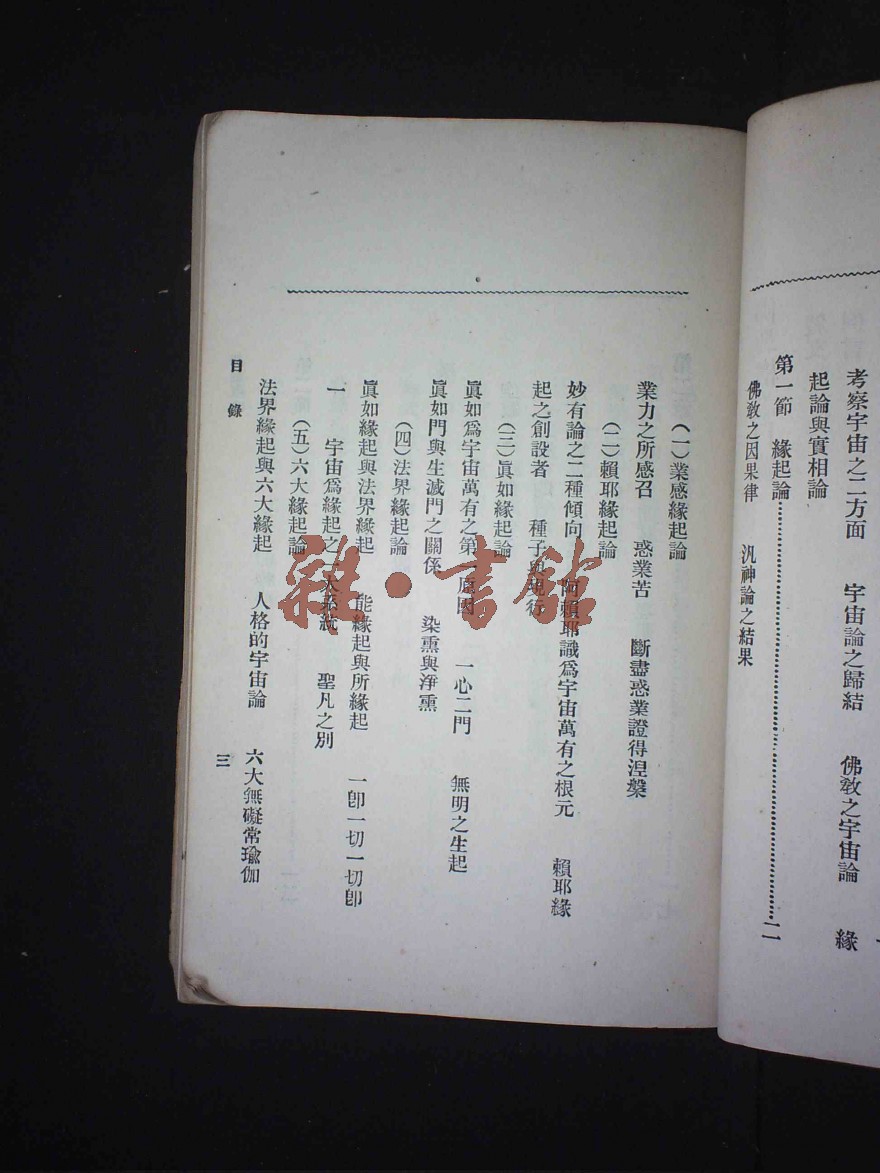 考察宇宙之二方面　宇宙論之歸結　佛敎之宇宙論　緣
起論與實相論
第一節　緣起論……………………二
佛敎之因果律　汎神論之結果
（一）業感緣起論
業力之所感召　惑業苦　斷盡惑業證得涅槃
（二）賴耶緣起論
妙有論之二種傾向　阿賴耶識爲宇宙萬有之根元　賴耶緣
起之創設者　種子與現行
（三）眞如緣起論
眞如爲宇宙萬有之第一原因　一心二門　無明之生起
眞如門與生滅門之關係　染熏與淨熏
（四）法界緣起論
眞如緣起與法界緣起　能緣起與所緣起　一卽一切一切卽
一　宇宙爲緣起之一大系統　聖凡之別
（五）六大緣起論
法界緣起與六大緣起　人格的宇宙論　六大無礙常瑜伽
目錄
三
雜·書館